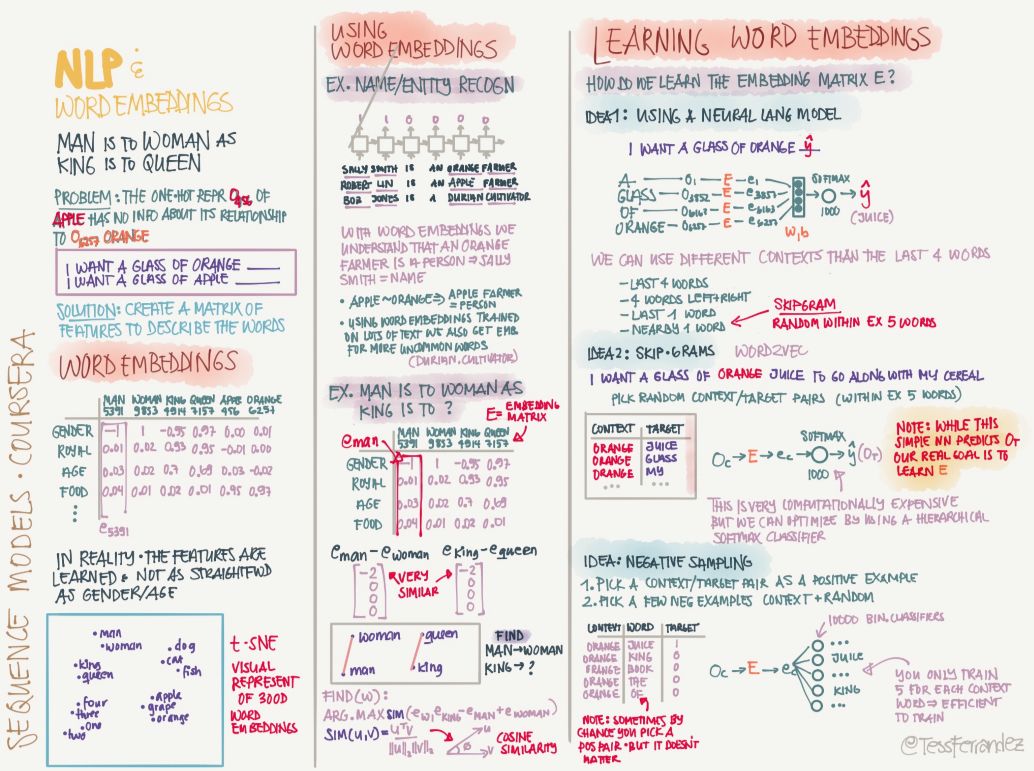 SEQUENCE MODELS · COURSERA
NLP &
WORD EMBEDDINGS
MAN IS TO WOMAN AS
KING IS TO QUEEN
PROBLEM: THE ONE-HOT REPR O456 OF
APPLE HAS NO INFO ABOUT ITS RELATIONSHIP
TO O6257 ORANGE
I WANT A GLASS OF ORANGE ____
I WANT A GLASS OF APPLE ____
SOLUTION: CREATE A MATRIX OF
FEATURES TO DESCRIBE THE WORDS
WORD EMBEDDINGS
MAN WOMAN KING QUEEN APPLE ORANGE
5391 9853 4914 7157 456 6257
GENDER -1 1 -0.95 0.97 0.00 0.01
ROYAL 0.01 0.02 0.93 0.95 -0.01 0.00
AGE 0.03 0.02 0.7 0.69 0.03 -0.02
FOOD 0.04 0.01 0.02 0.01 0.95 0.97
e5391
IN REALITY · THE FEATURES ARE
LEARNED & NOT AS STRAIGHTFWD
AS GENDER/AGE
man
woman
dog
king
cat
queen
fish
four
apple
three
grape
one
orange
two
t-SNE
VISUAL
REPRESENT
OF 300D
WORD
EMBEDDINGS
USING
WORD EMBEDDINGS
EX. NAME/ENTITY RECOGN
1 1 0 0 0 0
SALLY SMITH IS AN ORANGE FARMER
ROBERT LIN IS AN APPLE FARMER
BOB JONES IS A DURIAN CULTIVATOR
WITH WORD EMBEDDINGS WE
UNDERSTAND THAT AN ORANGE
FARMER IS A PERSON ⇒ SALLY
SMITH = NAME
• APPLE ~ ORANGE ⇒ APPLE FARMER
= PERSON
• USING WORD EMBEDDINGS TRAINED
ON LOTS OF TEXT WE ALSO GET EMB.
FOR MORE UNCOMMON WORDS
(DURIAN, CULTIVATOR)
EX. MAN IS TO WOMAN AS
KING IS TO ?
E = EMBEDDING
MATRIX
eman
MAN WOMAN KING QUEEN
5391 9853 4914 7157
GENDER -1 1 -0.95 0.97
ROYAL 0.01 0.02 0.93 0.95
AGE 0.03 0.02 0.7 0.69
FOOD 0.04 0.01 0.02 0.01
eman - ewoman eking - equeen
-2 -2
0 0
0 0
0 0
VERY
SIMILAR
woman queen
man king
FIND
MAN → WOMAN
KING → ?
FIND(W):
ARG.MAX SIM(ew, eKING - eMAN + eWOMAN)
SIM(U,V) = UᵀV / ||U||₂||V||₂
u
ø
v
COSINE
SIMILARITY
LEARNING WORD EMBEDDINGS
HOW DO WE LEARN THE EMBEDDING MATRIX E?
IDEA 1: USING A NEURAL LANG MODEL
I WANT A GLASS OF ORANGE ŷ
A O1 → E → e1
GLASS O3852 → E → e3852
OF O6163 → E → e6163
ORANGE O6257 → E → e6257
w,b
SOFTMAX
1000
ŷ
(JUICE)
WE CAN USE DIFFERENT CONTEXTS THAN THE LAST 4 WORDS
- LAST 4 WORDS
- 4 WORDS LEFT+RIGHT
- LAST 1 WORD
- NEARBY 1 WORD
SKIPGRAM
RANDOM WITHIN EX 5 WORDS
IDEA 2: SKIP-GRAMS WORD2VEC
I WANT A GLASS OF ORANGE JUICE TO GO ALONG WITH MY CEREAL
PICK RANDOM CONTEXT/TARGET PAIRS (WITHIN EX 5 WORDS)
CONTEXT TARGET
ORANGE JUICE
ORANGE GLASS
ORANGE MY
... ...
Oc → E → ec → ŷ (OT)
SOFTMAX
1000
NOTE: WHILE THIS
SIMPLE NN PREDICTS OT
OUR REAL GOAL IS TO
LEARN E
THIS IS VERY COMPUTATIONALLY EXPENSIVE
BUT WE CAN OPTIMIZE BY USING A HIERARCHICAL
SOFTMAX CLASSIFIER
IDEA: NEGATIVE SAMPLING
1. PICK A CONTEXT/TARGET PAIR AS A POSITIVE EXAMPLE
2. PICK A FEW NEG EXAMPLES CONTEXT + RANDOM
CONTEXT WORD TARGET
ORANGE JUICE 1
ORANGE KING 0
ORANGE BOOK 0
ORANGE THE 0
ORANGE OF 0
NOTE: SOMETIMES BY
CHANCE YOU PICK A
POS PAIR · BUT IT DOESN'T
MATTER
Oc → E → ec
10000 BIN. CLASSIFIERS
...
JUICE
...
KING
...
YOU ONLY TRAIN
5 FOR EACH CONTEXT
WORD ⇒ EFFICIENT
TO TRAIN
@TessFerrandez